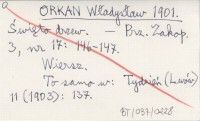 ORKAN Władysław 1901.
Święto drzew. — Prz. Zakop.
3, nr 17: 146-147.
Wiersz.
To samo w: Tydzień (Lwów)
11 (1903): 137.
BT/037/0228